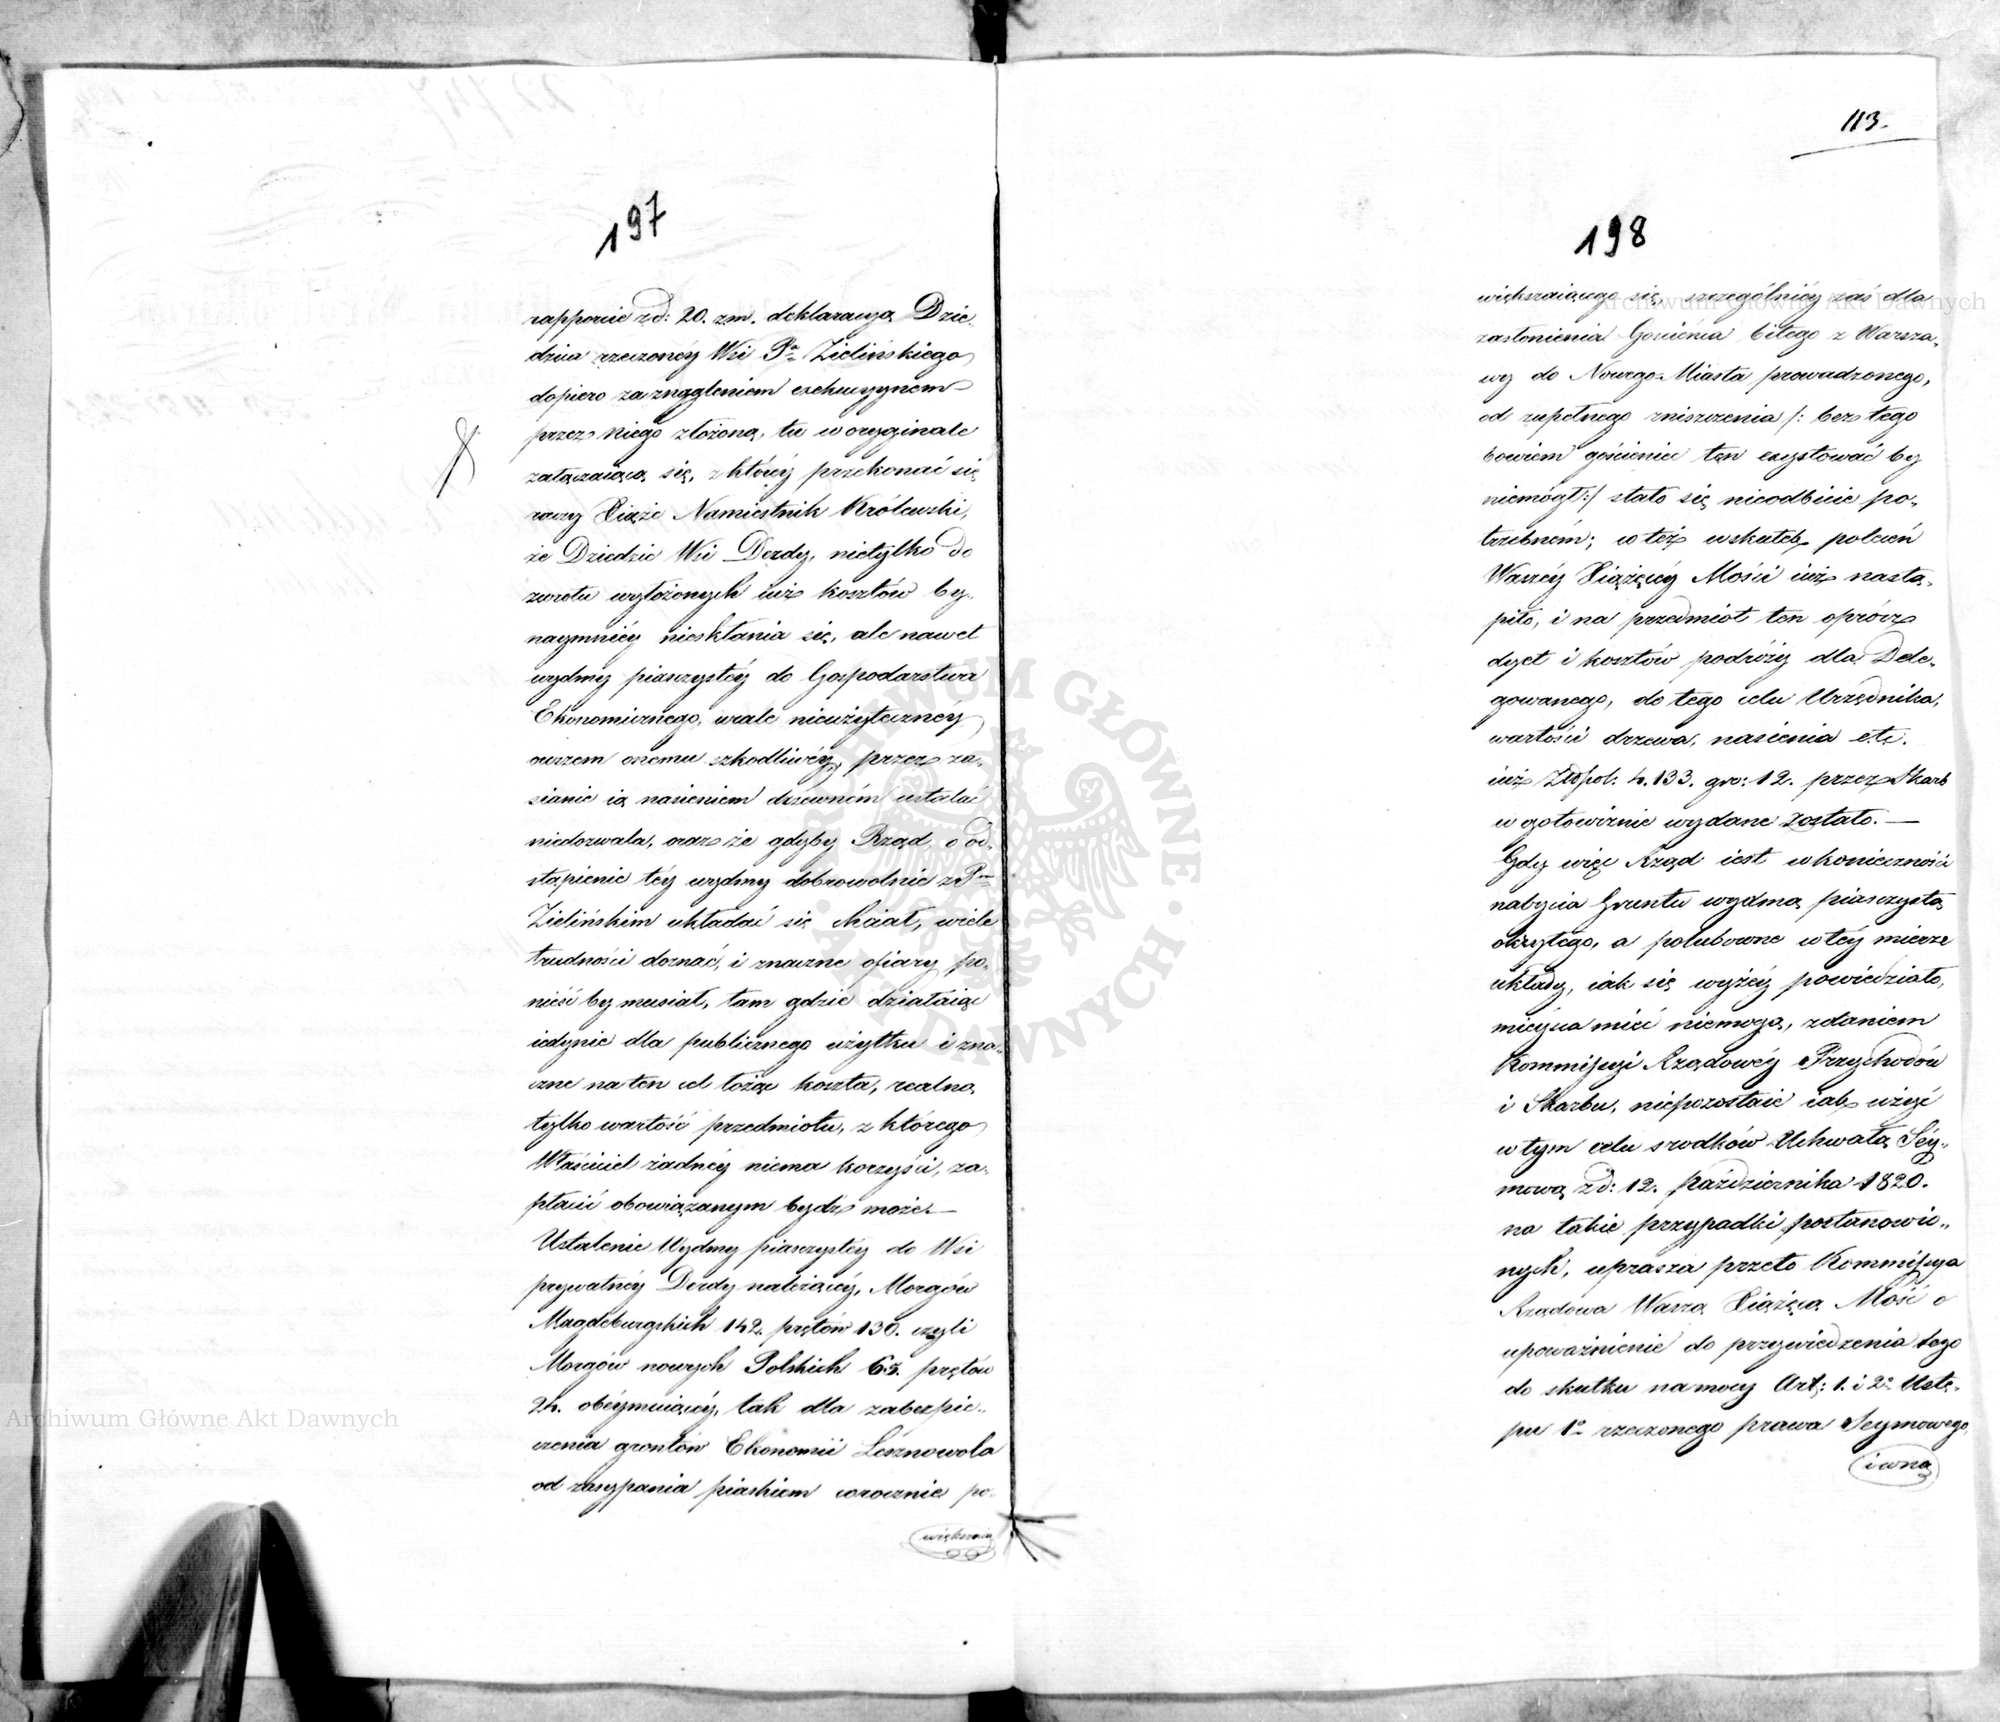 197
rapporcie z d: 20. z.m. deklaracya Dzie-
dzica rzeczonéy Wsi Pa Zielińskiego
dopiero za znagleniem exekucyynem
przez niego złożona, tu w oryginale
załączaiąca się, z któréy przekonać się
raczy Xiąże Namiestnik Królewski,
że Dziedzic Wsi Derdy, nietylko do
zwrotu wyłożonych iuż kosztów by-
naymniéy niesktania się, ale nawet
wydmy piasczystéy do Gospodarstwa
Ekonomicznego, wcale nieużyteczney
owszem onemu szkodliwéy, przez za-
sianie ią nasieniem drzewném ustalać
niedozwala, oraz że gdyby Rząd o od-
stąpienie téy wydmy dobrowolnie z Pm
Zielińskim układać się chciał, wiele
trudności doznać, i znaczne ofiary po-
nieść by musiał, tam gdzie działaiąc
iedynie dla publicznego użytku i zna-
czne na ten cel łożąc koszta, realną
tylko wartość przedmiotu, z którego
Właściciel żadnéy niema korzyści, za-
płacić obowiązanym bydz może.—
Ustalenie Wydmy piasczystéy do Wsi
prywatnéy Derdy należącéy, Morgów
Magdeburgskich 142. prętów 130. czyli
Morgów nowych Polskich 63. prętów
24. obéymuiącéy, tak dla zabezpie-
czenia gruntów Ekonomii Lesznowola
od zasypania piaskiem corocznie po-
większaią
113.
198
większaiącego się, szczególniéy zaś dla
zasłonienia Gościńca bitego z Warsza-
wy do Nowego-Miasta prowadzonego,
od zupełnego zniszczenia /: bez tego
bowiem gościniec ten exystować by
niemógł :/ stało się nieodbicie po-
trzebném; to też w skutek poleceń
Waszéy Xiążęcéy Mości iuż nastą-
piło, i na przedmiot ten oprócz
dyet i kosztów podróży dla Dele-
gowanego, do tego celu Urzędnika,
wartości drzewa, nasienia etc.
iuż Złłpol: 4.133. gro: 12. przez Skarb
w gotowiznie wydane zostało.—
Gdy więc Rząd iest w konieczności
nabycia Gruntu wydmą piasczystą
okrytego, a polubowne w téy mierze
układy, iak się wyżéy powiedziało,
mieysca mieć niemogą, zdaniem
Kommissyi Rządowéy Przychodów
i Skarbu, niepozostaie iak użyć
w tym celu srodków Uchwałą Séy-
mową z d: 12. Października 1820.
na takie przypadki postanowio-
nych, uprasza przeto Kommissya
Rządowa Waszą Xiążęcą Mość o
upoważnienie do przywiedzenia tego
do skutku na mocy Art: 1. i 2o Ustę-
pu 1o rzeczonego prawa Seymowego,
i wna
ARCHIWUM GŁÓWNE AKT DAWNYCH
Archiwum Główne Akt Dawnych
Archiwum Główne Akt Dawnych